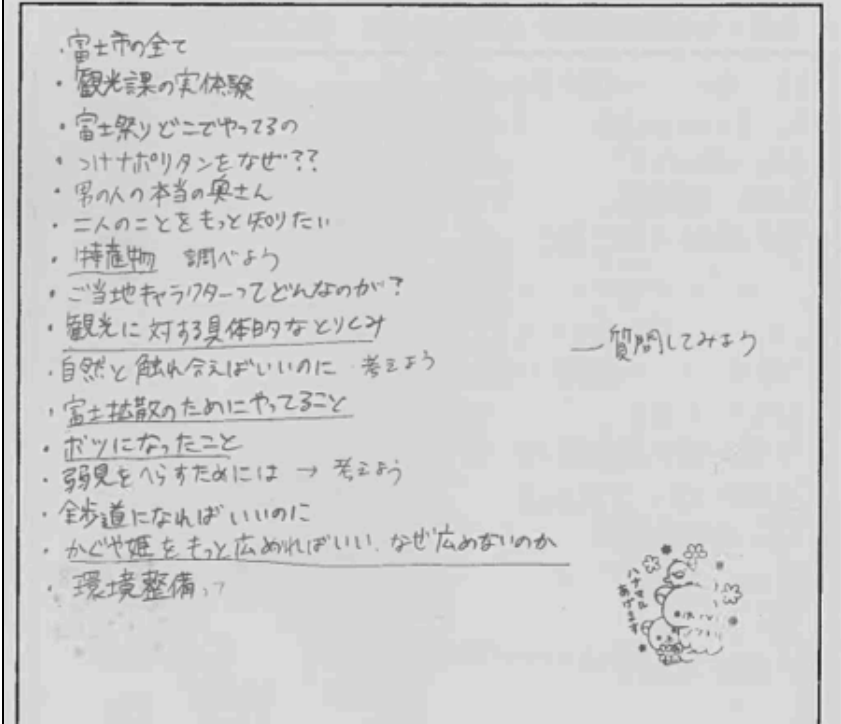 ・富士市の全て
・観光課の実体験
・富士祭りどこでやってるの
・つけナポリタンをなぜ??
・男の人の本当の奥さん
・二人のことをもっと知りたい
・特産物 調べよう
・ご当地キャラクターってどんなのが?
・観光に対する具体的なとりくみ
― 質問してみよう
・自然と触れ合えばいいのに 考えよう
・富士拡散のためにやってること
・ボツになったこと
・弱見をへらすためには → 考えよう
・全歩道になればいいのに
・かぐや姫をもっと広めればいい、なぜ広めないのか
・環境整備って
ハナマル
あげます